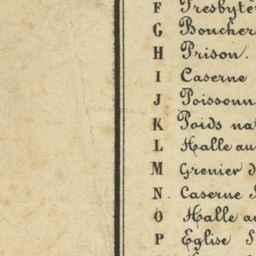 F Presbytè
G Boucher
H Prison.
I Caserne
J Poissonn
K Poids na
L Halle au
M Grenier d
N. Caserne
O Halle a
P Eglise S